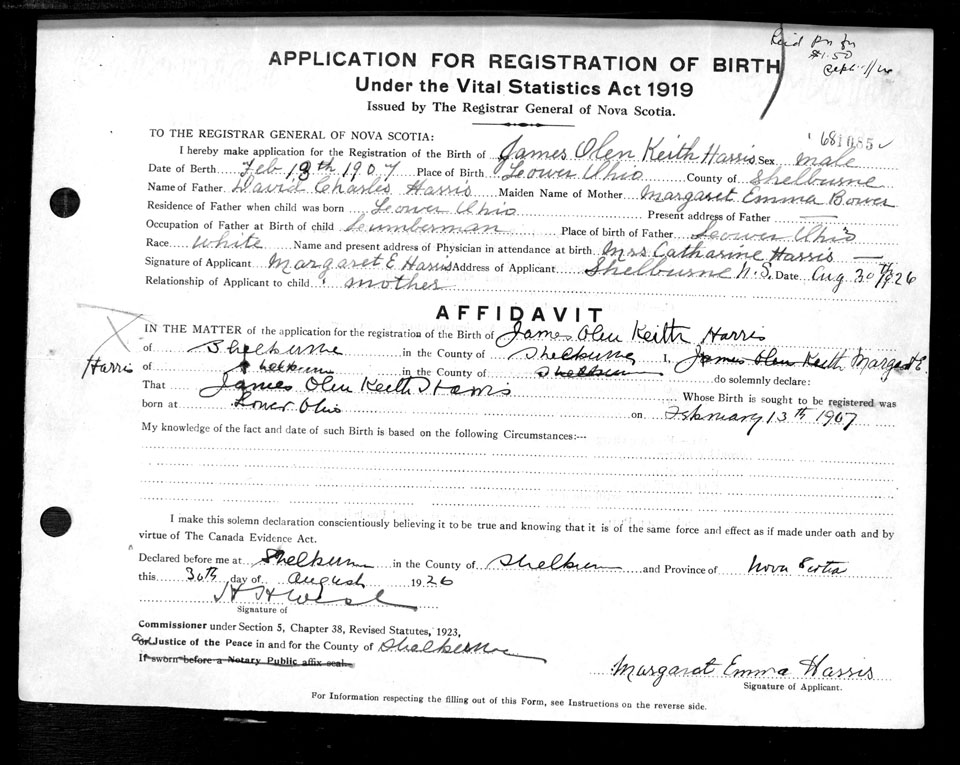 $1.50
APPLICATION FOR REGISTRATION OF BIRTH
Under the Vital Statistics Act 1919
Issued by The Registrar General of Nova Scotia.
TO THE REGISTRAR GENERAL OF NOVA SCOTIA: 681085
I hereby make application for the Registration of the Birth of James Olen Keith Harris Sex male
Date of Birth Feb 13th 1907 Place of Birth Leower Ohio County of Shelburne
Name of Father David Charles Harris Maiden Name of Mother Margaret Emma Bower
Residence of Father when child was born Leower Ohio Present address of Father —
Occupation of Father at Birth of child Lumberman Place of birth of Father Leower Ohio
Race White Name and present address of Physician in attendance at birth Mrs Catharine Harris —
Signature of Applicant Margaret E Harris Address of Applicant Shelburne N.S. Date Aug 30th 1926
Relationship of Applicant to child mother
AFFIDAVIT
IN THE MATTER of the application for the registration of the Birth of James Olen Keith Harris
of Shelburne in the County of Shelburne I, James Olen Keith Margaret E.
Harris of Shelburne in the County of Shelburne do solemnly declare:
That James Olen Keith Harris Whose Birth is sought to be registered was
born at Lower Ohio on February 13th 1907
My knowledge of the fact and date of such Birth is based on the following Circumstances:---
I make this solemn declaration conscientiously believing it to be true and knowing that it is of the same force and effect as if made under oath and by
virtue of The Canada Evidence Act.
Declared before me at Shelburne in the County of Shelburne and Province of Nova Scotia
this 30th day of August 1926
Signature of
Commissioner under Section 5, Chapter 38, Revised Statutes, 1923,
or Justice of the Peace in and for the County of Shelburne
If sworn before a Notary Public affix seal.
Margaret Emma Harris
Signature of Applicant.
For Information respecting the filling out of this Form, see Instructions on the reverse side.